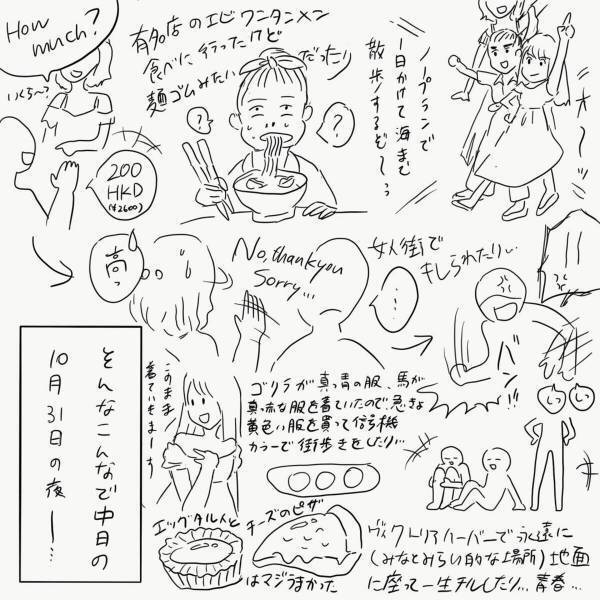 ノープランで
1日かけて海まで
散歩するぞ〜っ
オ〜ッ
有名店のエビワンタンメン
食べに行ったけど
麺ゴムみたいだったり
?
?
How much?
いくら〜?
200
HKD
(¥2600)
高っ
No, thank you
Sorry...
…
女人街で
キレられたりい
バン!!
ゴリラが真っ青の服、馬が
真っ赤な服を着ていたので急きょ
黄色い服を買って信号機
カラーで街歩きをしたり…
このまま
着ていきまーす
エッグタルトと
チーズのピザ
はマジうまかった
ヴィクトリアハーバーで永遠に
(みなとみらい的な場所)地面
に座って一生チルしたり…青春…
そんなこんなで中日の
10月31日の夜ー…